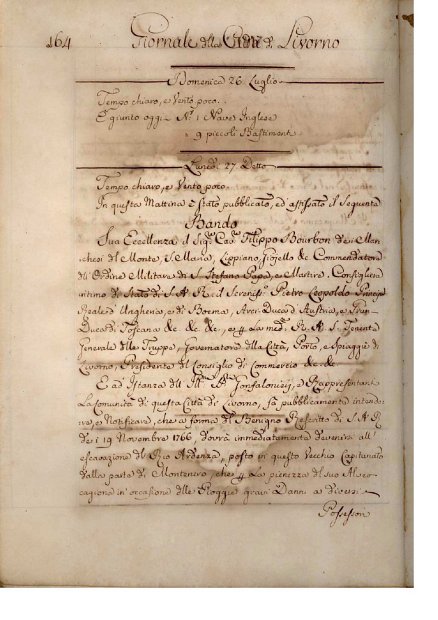 164 Giornale della Città di Livorno
Domenica 26 Luglio
Tempo chiaro, e Vento poco.
È giunto oggi N.° 1 Nave Inglese
9 piccoli Bastimenti
Lunedì 27 Detto
Tempo chiaro, e Vento poco.
In questa Mattina è stato pubblicato, ed affissato il seguente
Bando
Sua Eccellenza il Sig.r Cav. Filippo Bourbon dei Mar-
chesi del Monte, S. Maria, Lippiano, Giojello &c Commendatore
dell'Ordine Militare di S. Stefano Papa, e Martire, Consigliere
intimo di Stato di S. A. R. il Serenis.° Pietro Leopoldo Principe
Reale d'Ungheria, e di Boemia, Arci-Duca d'Austria, e Gran-
Duca di Toscana &c. &c. &c., e per la med. R. A. S. Generale
Generale delle Truppe, Governatore della Città, Porto, e Spiaggie di
Livorno, Presidente del Consiglio di Commercio &c. &c.
E ad Istanza dell' Ill. Gonfaloniere, e Rappresentanti
La Comunità di questa Città di Livorno, fà pubblicamente intende-
re, e Notificare, che a forma del Benigno Rescritto di S. A. R.
dei 19 Novembre 1766, dovrà immediatamente devenirsi all'
escavazione del Rio Ardenza, posto in questo Vecchio Capitanato
dalla parte di Montenero, che per la pienezza del suo Alveo
cagiona in occasione delle Pioggie gravi Danni a diversi
Possessori